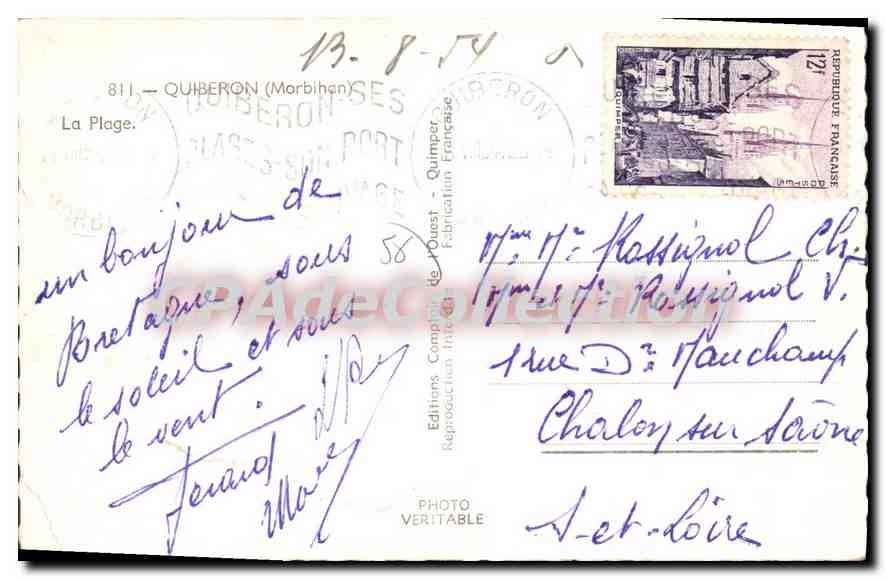 13-8-54
811. — QUIBERON (Morbihan)
La Plage.
un bonjour de
Bretagne, sous
le soleil et sous
le vent.
58
Editions Comptoir de l'Ouest - Quimper
Reproduction Interdite Fabrication Française
PHOTO
VERITABLE
12f
REPUBLIQUE FRANÇAISE
POSTES
QUIMPER
QUIBERON
QUIBERON-SES
PLAGES-SON PORT
CPAdeCollection
Mme Mr Rossignol Ch.
Mme et Mr Rossignol V.
1 rue Dr Mauchamp
Chalon sur Saône
S-et-Loire